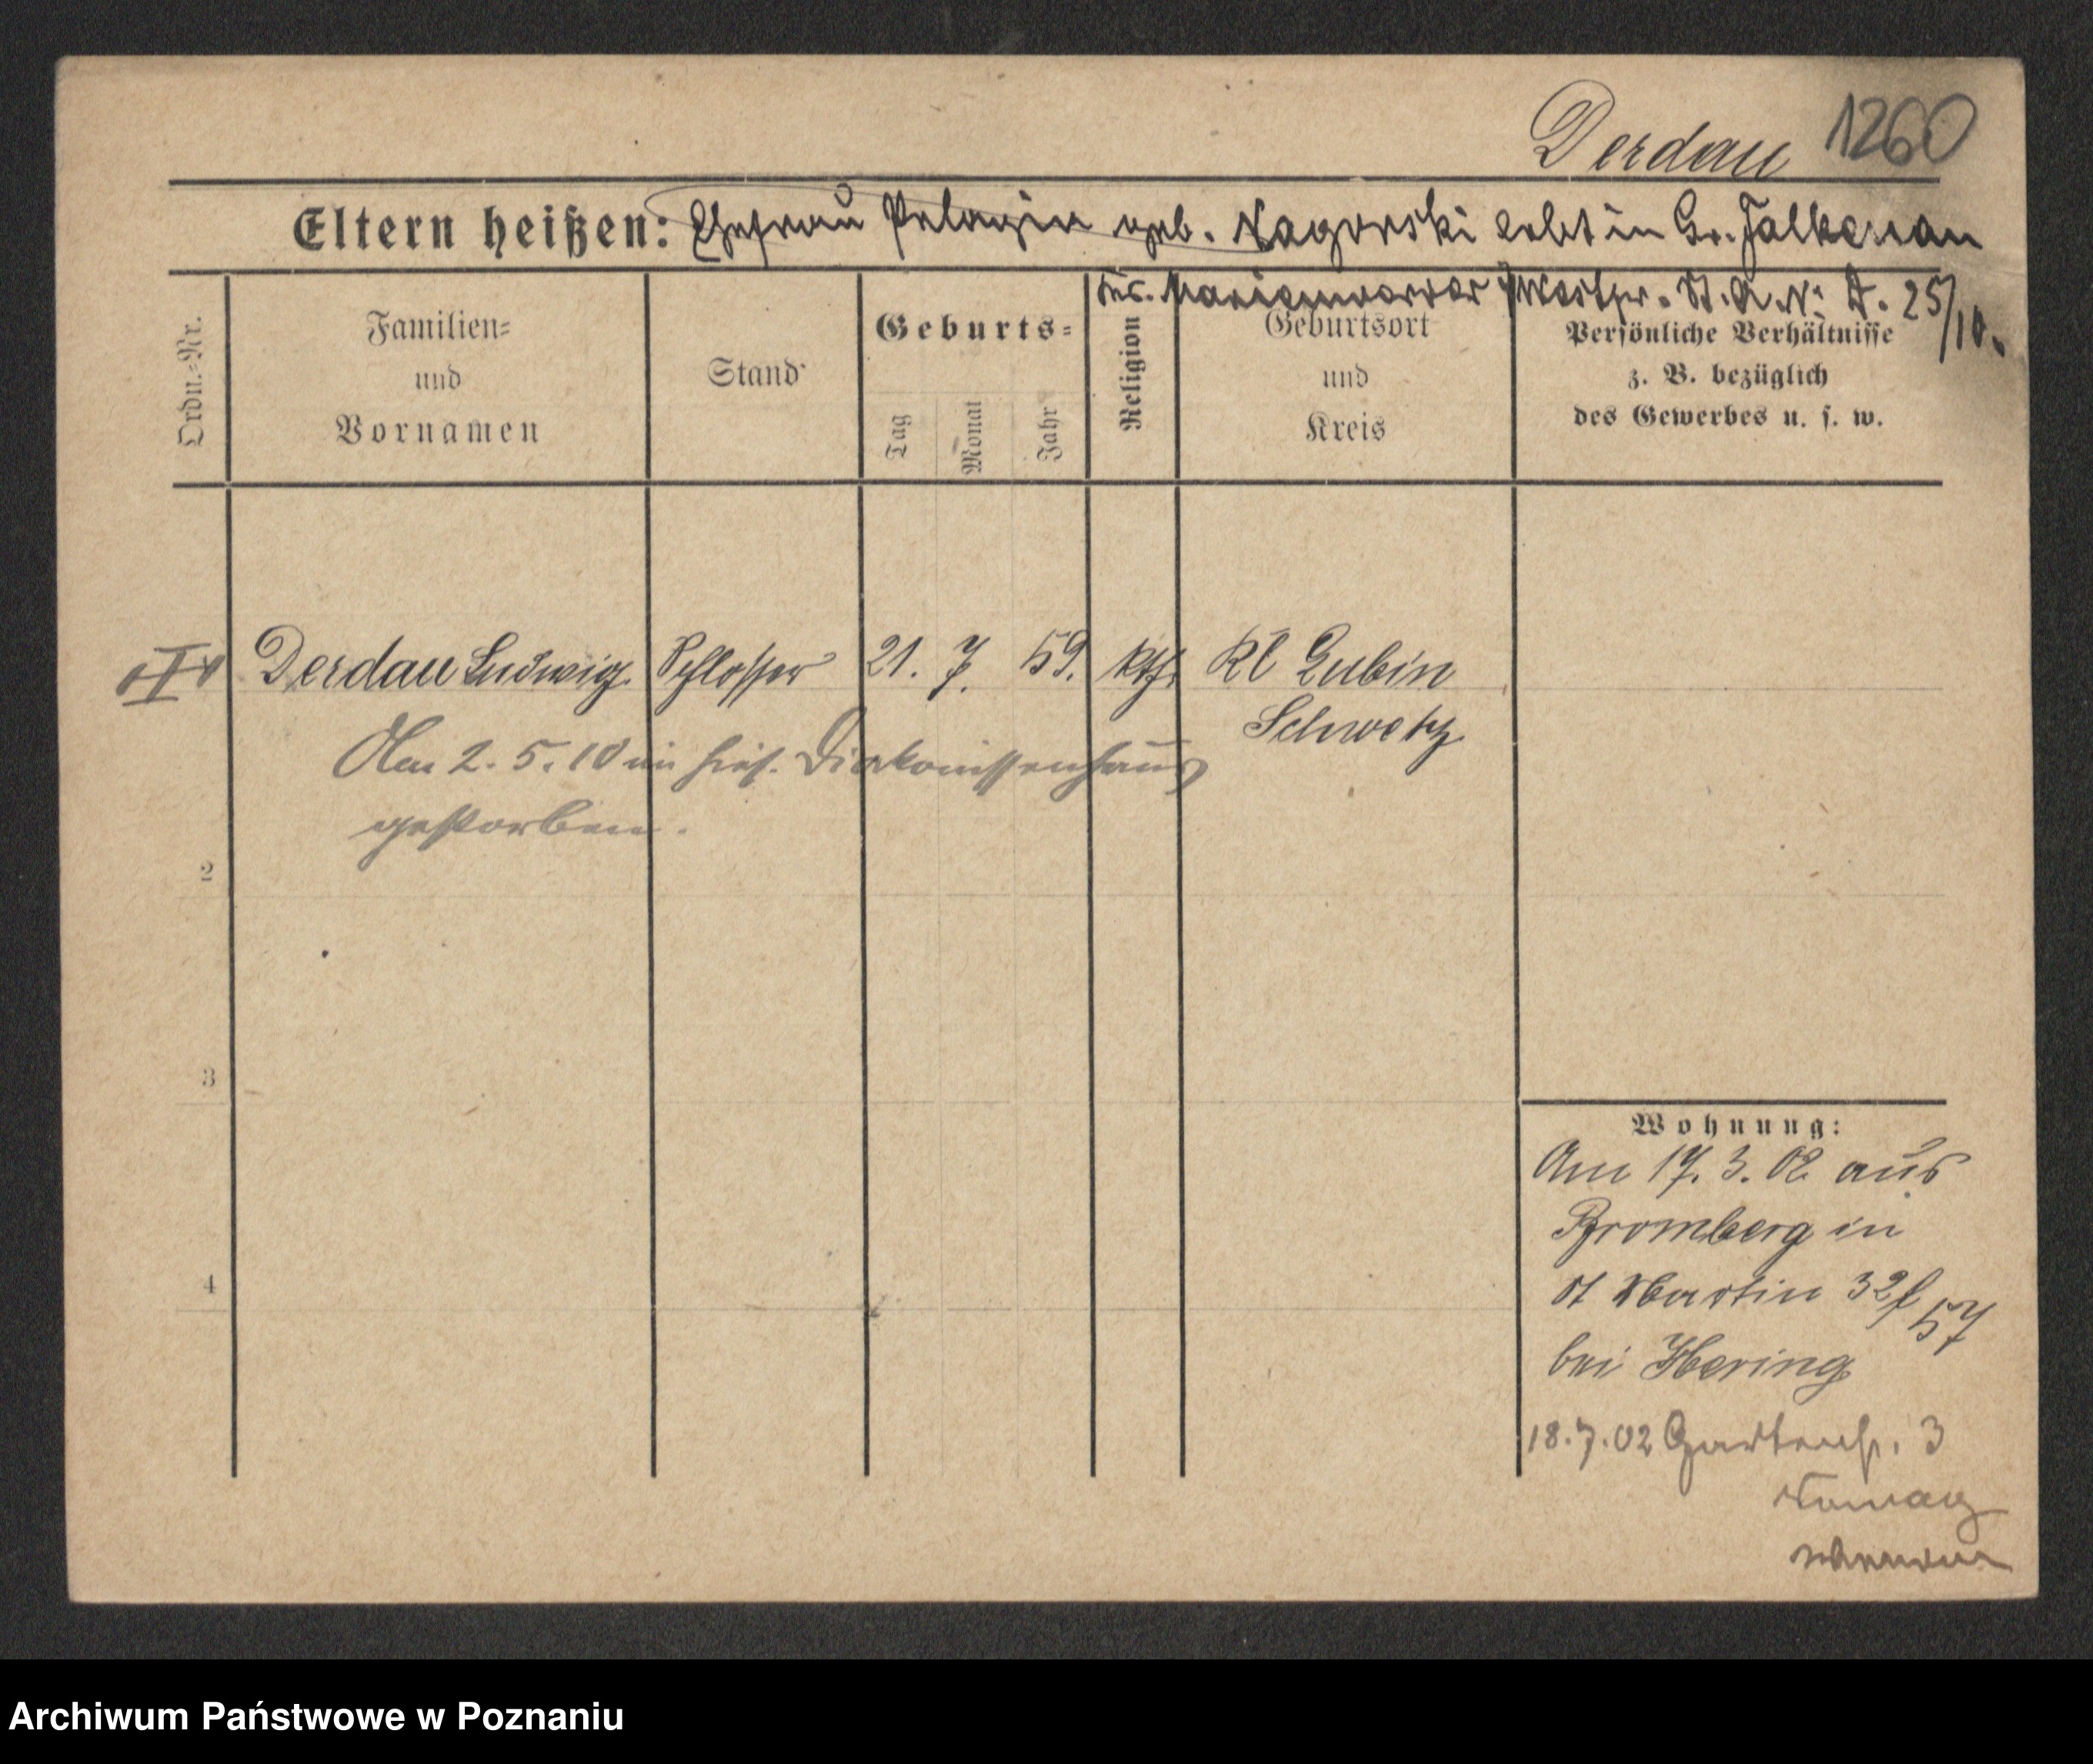 Derdau 1260
Eltern heißen: Ehefrau Pelagia geb. Nagorski lebt in Gr. Falkenau
Krs. Marienwerder Westpr. St. A. N: A. 25/10.
Ordn.-Nr.
Familien-
und
Vornamen
Stand
Geburts-
Tag
Monat
Jahr
Religion
Geburtsort
und
Kreis
Persönliche Verhältnisse
z. B. bezüglich
des Gewerbes u. s. w.
Derdau Ludwig. Schlosser 21. 7. 59. kth. Kl Lubin
Schwetz
Am 2. 5. 10 im hies. Diakonissenhaus
gestorben.
2
3
4
Wohnung:
Am 17. 3. 02 aus
Bromberg in
St Martin 32/57
bei Hering
18.7.02 Gartenstr. 3
Archiwum Państwowe w Poznaniu